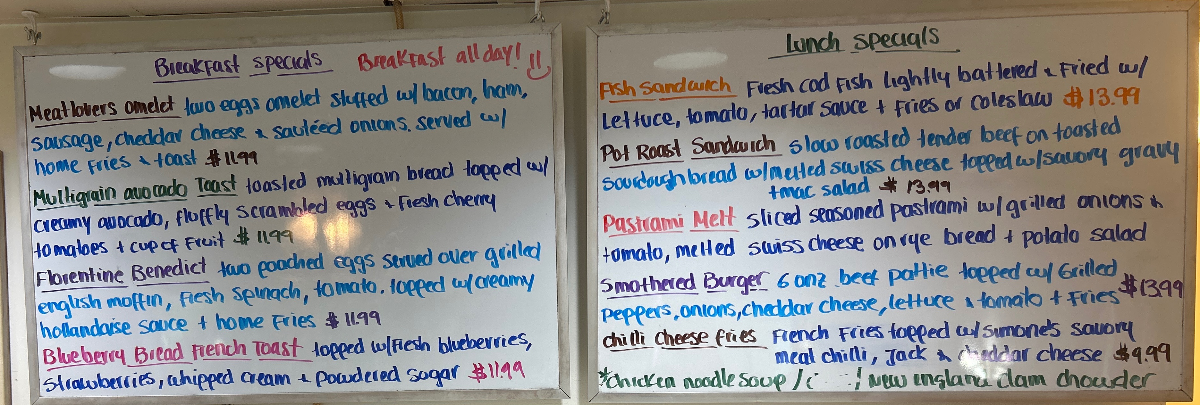 Breakfast specials Breakfast all day!
Meatlovers omelet two eggs omelet stuffed w/ bacon, ham,
sausage, cheddar cheese & sautéed onions. served w/
home fries & toast $11.99
Multigrain avocado Toast toasted multigrain bread topped w/
creamy avocado, fluffly scrambled eggs & fresh cherry
tomatoes + cup of fruit $11.99
Florentine Benedict two poached eggs served over grilled
english moffin, fresh spinach, tomato. topped w/ creamy
hollandaise sauce + home fries $11.99
Blueberry Bread French Toast topped w/ fresh blueberries,
strawberries, whipped cream & powdered sugar $11.99
Lunch specials
Fish Sandwich Fresh cod fish lightly battered & fried w/
lettuce, tomato, tartar sauce + fries or coleslaw $13.99
Pot Roast Sandwich slow roasted tender beef on toasted
sourdough bread w/ melted swiss cheese topped w/ savory gravy
+ mac salad $13.99
Pastrami Melt sliced seasoned pastrami w/ grilled onions &
tomato, melted swiss cheese on rye bread + potato salad
Smothered Burger 6 onz. beef pattie topped w/ Grilled
Peppers, onions, cheddar cheese, lettuce & tomato + fries $13.99
chilli cheese fries French fries topped w/ simone's savory
meat chilli, Jack & cheddar cheese $9.99
*chicken noodle soup / / new england clam chowder